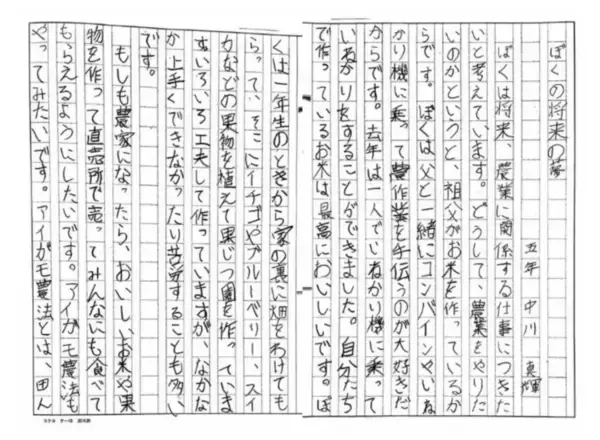 ぼくの将来の夢
五年 中川 真輝
ぼくは将来、農業に関係する仕事につきた
いと考えています。どうして、農業をやりた
いのかというと、祖父がお米を作っているか
らです。ぼくは父と一緒にコンバインやいね
かり機に乗って農作業を手伝うのが大好きだ
からです。去年は一人でいねかり機に乗って
いねかりをすることができました。自分たち
で作っているお米は最高においしいです。ぼ
くは一年生のときから家の裏に畑をわけても
らって、そこにイチゴやブルーベリー、スイ
カなどの果物を植えて果じつ園を作っていま
す。いろいろ工夫して作っていますが、なかな
か上手くできなかったり苦労することも多い
です。
もしも農家になったら、おいしいお米や果
物を作って直売所で売ってみんなにも食べて
もらえるようにしたいです。アイガモ農法も
やってみたいです。アイガモ農法とは、田ん